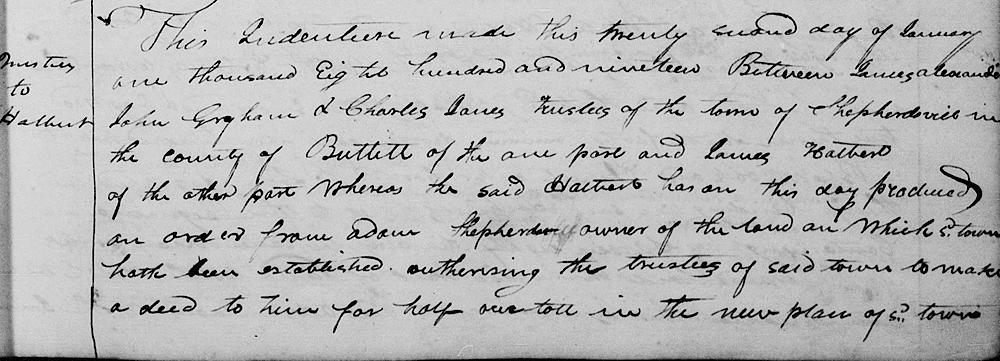 Trustees
to
Halbert
This Indenture made this twenty second day of January
one thousand Eight hundred and nineteen Between James alexander
John Grgham & Charles James Trustees of the town of Shepherdsvill in
the county of Bullitt of the one part and James Halbert
of the other part Whereas the said Halbert has on this day produced
an order from adam Shepherd owner of the land on Which sd. town
hath been established autherising the trustees of said town to make
a deed to him for half in the new plan of sd. town